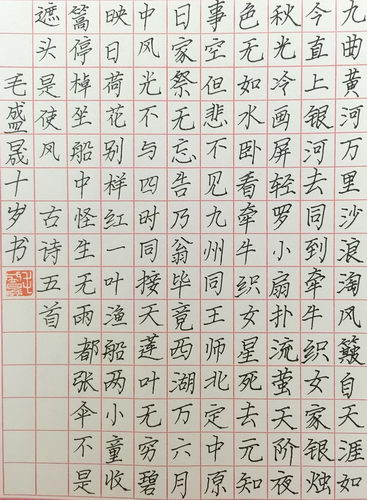 九曲黄河万里沙浪淘风簸自天涯如
今直上银河去同到牵牛织女家银烛
秋光冷画屏轻罗小扇扑流萤天阶夜
色无如水卧看牵牛织女星死去元知
事空但悲不见九州同王师北定中原
日家祭无忘告乃翁毕竟西湖万六月
中风光不与四时同接天莲叶无穷碧
映日荷花别样红一叶渔船两小童收
篙停棹坐船中怪生无雨都张伞不是
遮头是使风 古诗五首
毛盛晟十岁书